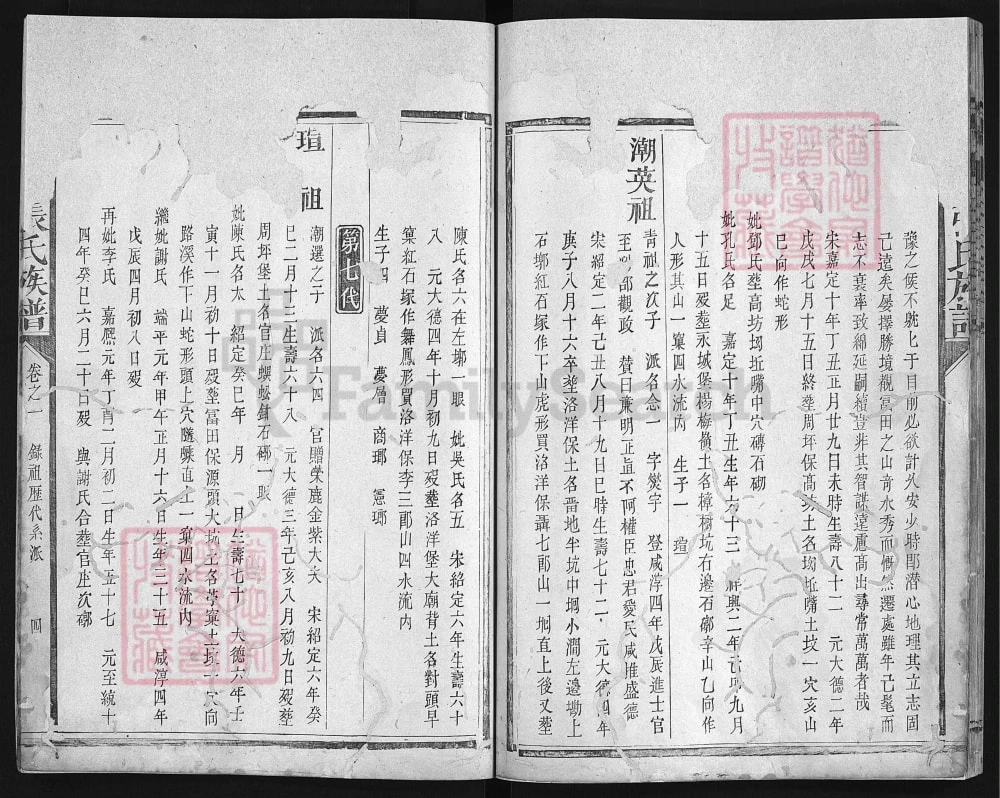 豫之侯不脫上于目前必欲計久安少時郎潜心地理其立志固
己遠矣屡擇勝境観富田之山奇水秀而慨然遷處雖年己髦而
志不衰率致綿延嗣續豈非其智謀遠慮髙出尋常萬萬者哉
宋嘉定十年丁丑正月廿九日未時生壽八十二 元大德二年
戊戌七月十五日終塟周坪保髙坊土名坳坵嘴土坟一穴亥山
巳向作蛇形
妣鄧氏塟高坊坳坵嘴中穴磚石砌
妣孔氏名足 嘉定十年丁丑生年六十三 興二年 九月
十五日殁塟永城堡楊梅嶺土名樟樹坑右邊石廓辛山乙向作
人形其山一窠四水流丙 生子一 瑄
潮英祖
青祖之次子 派名念一 字燮字 登咸淳四年戊辰進士官
至 部觀政 賛曰亷明正直不阿權臣忠君愛民咸推盛德
宋紹定二年己丑八月十九日巳時生壽七十二 元大德四年
庚子八月十六卒塟洛洋保土名晋地半坑中垇小澗左邊坳上
石墎紅石塚作下山虎形買洛洋保聶七郎山一垇直上後又塟
陳氏名六在左墎一眼 妣吳氏名五 宋紹定六年生壽六十
八 元大德四年十月初九日殁塟洛洋堡大廟背土名對頭早
窠紅石塚作舞鳳形買洛洋保李三郎山四水流内
生子四 夢貞 夢層 商瑯 憲瑯
第七代
瑄祖
潮選之子 派名六四 官贈荣祿金紫大夫 宋紹定六年癸
巳二月十三生壽六十八 元大德三年己亥八月初九日殁塟
周坪堡土名官庄 石砌一眼
妣陳氏名太 紹定癸巳年 月 日生壽七十 大德六年壬
寅十一月初十日殁塟富田保源頭大坑土名 窠土坟一穴向
路溪作下山蛇形頭上穴隨 直上一窠四水流内
繼妣謝氏 端平元年甲午正月十六日生年三十五 咸淳四年
戊辰四月初八日殁
再妣李氏 嘉熙元年丁酉二月初二日生年五十七 元至統十
四年癸巳六月二十日殁 與謝氏合塟官庄次墎
張氏族譜 卷之一 錄祖歷代系派 四
氏族譜